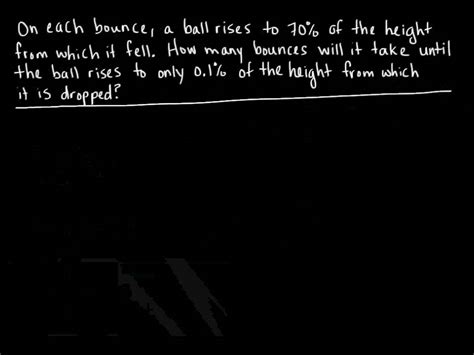 On each bounce, a ball rises to 70% of the height
from which it fell. How many bounces will it take until
the ball rises to only 0.1% of the height from which
it is dropped?